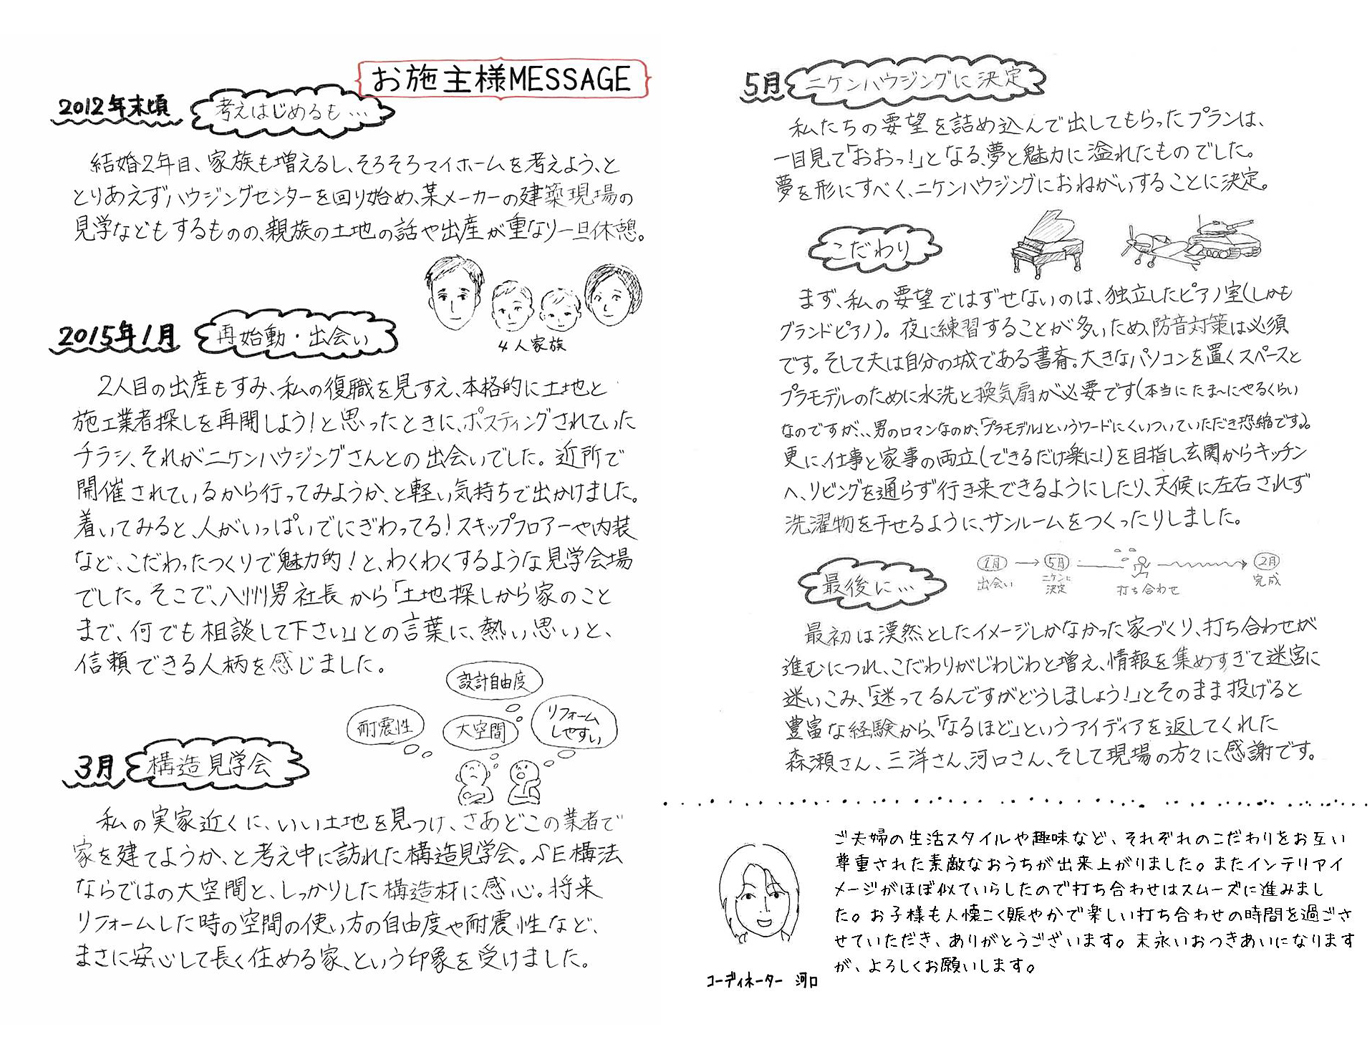 お施主様MESSAGE
2012年末頃
考えはじめるも…
結婚2年目、家族も増えるし、そろそろマイホームを考えよう、と
とりあえずハウジングセンターを回り始め、某メーカーの建築現場の
見学などもするものの、親族の土地の話や出産が重なり一旦休憩。
4人家族
2015年1月
再始動・出会い
2人目の出産もすみ、私の復職を見すえ、本格的に土地と
施工業者探しを再開しよう!と思ったときに、ポスティングされていた
チラシ、それがニケンハウジングさんとの出会いでした。近所で
開催されているから行ってみようか、と軽い気持ちで出かけました。
着いてみると、人がいっぱいでにぎわってる!スキップフロアーや内装
など、こだわったつくりで魅力的!と、わくわくするような見学会場
でした。そこで、八州男社長から「土地探しから家のこと
まで、何でも相談して下さい」との言葉に、熱い思いと、
信頼できる人柄を感じました。
設計自由度
耐震性
大空間
リフォーム
しやすい
3月
構造見学会
私の実家近くに、いい土地を見つけ、さあどこの業者で
家を建てようか、と考え中に訪れた構造見学会。SE構法
ならではの大空間と、しっかりした構造材に感心。将来
リフォームした時の空間の使い方の自由度や耐震性など、
まさに安心して長く住める家、という印象を受けました。
5月
ニケンハウジングに決定
私たちの要望を詰め込んで出してもらったプランは、
一目見て「おおっ!」となる、夢と魅力に溢れたものでした。
夢を形にすべく、ニケンハウジングにおねがいすることに決定。
こだわり
まず、私の要望ではずせないのは、独立したピアノ室(しかも
グランドピアノ)。夜に練習することが多いため、防音対策は必須
です。そして夫は自分の城である書斎。大きなパソコンを置くスペースと
プラモデルのために水洗と換気扇が必要です(本当にたま〜にやるくらい
なのですが、、男のロマンなのか、「プラモデル」というワードにくいついていただき恐縮です)。
更に、仕事と家事の両立(できるだけ楽に!)を目指し玄関からキッチン
へ、リビングを通らず行き来できるようにしたり、天候に左右されず
洗濯物を干せるように、サンルームをつくったりしました。
最後に…
1月
出会い
5月
ニケンに
決定
打ち合わせ
2月
完成
最初は漠然としたイメージしかなかった家づくり、打ち合わせが
進むにつれ、こだわりがじわじわと増え、情報を集めすぎて迷宮に
迷いこみ、「迷ってるんですがどうしましょう!」とそのまま投げると
豊富な経験から、「なるほど」というアイディアを返してくれた
森瀬さん、三洋さん、河口さん、そして現場の方々に感謝です。
ご夫婦の生活スタイルや趣味など、それぞれのこだわりをお互い
尊重された素敵なおうちが出来上がりました。またインテリアイ
メージがほぼ似ていらしたので打ち合わせはスムーズに進みまし
た。お子様も人懐こく賑やかで楽しい打ち合わせの時間を過ごさ
せていただき、ありがとうございます。末永いおつきあいになります
が、よろしくお願いします。
コーディネーター 河口